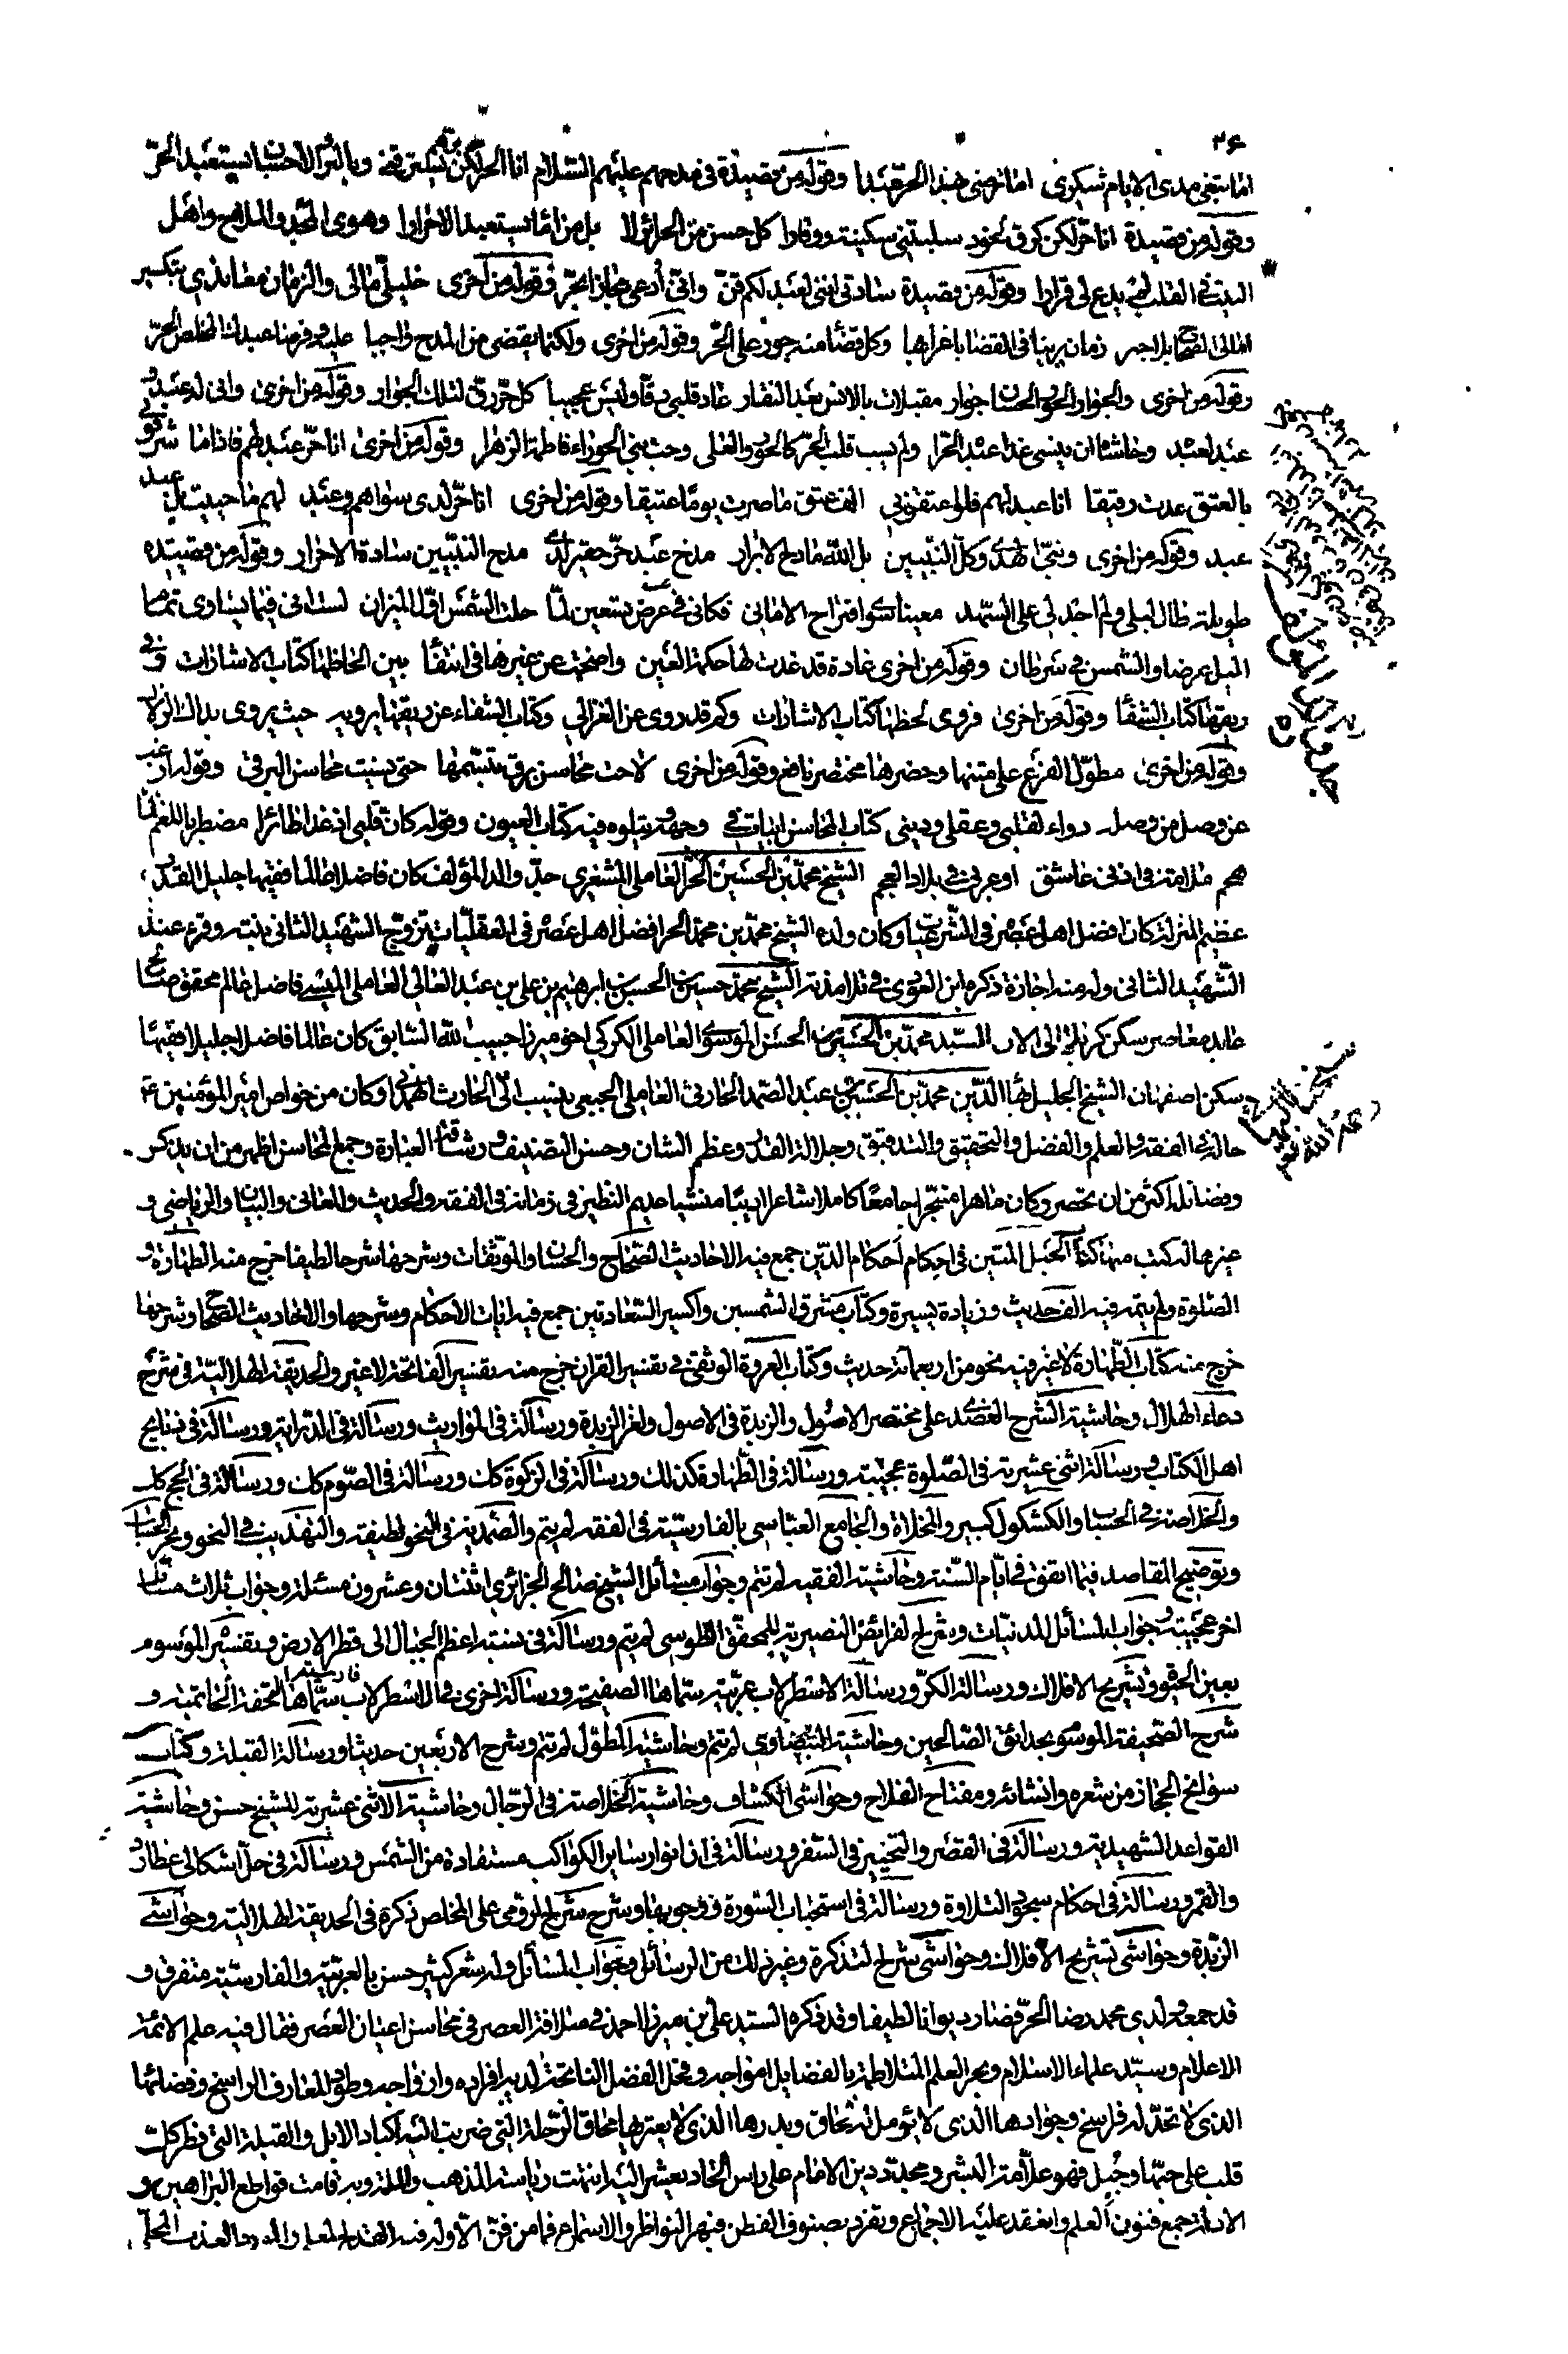 ٢۶
اما تبقى مدى الايام شكرى اما ترضى بهذا الحر عبدا وقوله من قصيدة في مدحهم عليهم السلام انا الحر لكن برهم يسترقني وبالبر والاحسان يستعبد الحر
وقوله من قصيدة انا حر لكن كرق لخود سلبتني سكينة ووقارا كل حسن من الحرائر لا بل من اما يستعبد الاحرارا وهوى المجد والملاح واهل
البيت في القلب لم يدع لي قرارا وقوله من قصيدة سادتي انني لعبد لكم قن واني ادعى مجازا بحر وقوله من اخرى خليلي مالي والزمان معاندي بتكسير
امالي الصحاح بلا جبر زمان يرينا في القضايا غرائبا وكل قضا منه جور على الحر وقوله من اخرى ولكنما يقضي من المدح واجبا عليه وفرضا عبدك المخلص الحر
وقوله من اخرى والجوار الحور الحسان جوار مقبلات بالانس بعد النفار عاد قلبي رقا وليس عجيبا كل حر رق لتلك الجوار وقوله من اخرى واني له عبد و
عبد لعبد وحاشاه ان ينسى غدا عبده الحرا ولم يسب قلب الحر كالحور والعلى وحب بني الحوراء فاطمة الزهرا وقوله من اخرى انا حر عبد لهم فاذا ما شرفوني
بالعتق عدت رقيقا انا عبد لهم فلو اعتقوني الف عتق ما صرت يوما عتيقا وقوله من اخرى انا حر لدى سواهم وعبد لهم ما حييت بل عبد
عبد وقوله من اخرى ونبي الهدى وكل النبيين بل الله مادح الابرار مدح عبد حر حقير لدى مدح النبيين سادة الاحرار وقوله من قصيدة
طويلة طال ليلي ولم اجد لي على السهد معينا سوى اقتراح الاماني فكاني في عرض تسعين لما حلت الشمس اول الميزان لست اني فيما يساوى تمام
الميل عرضا والشمس في سرطان وقوله من اخرى غادة قد غدت لها حكمة العين واضحت عن غيرها في انتفا بين الحاظها كتاب الاشارات وفي
ريقها كتاب الشفا وقوله من اخرى فروى لحظها كتاب الاشارات وكم قد روى عن الغزالي وكتاب الشفاء عن ريقها يرويه حيث يروى بذاك الزلال
وقوله من اخرى مطول الفرع على متنها وخصرها مختصر نافع وقوله من اخرى لاحت محاسن برق مبسمها حتى نسيت محاسن البرقي وقوله ارغب
عن وصل من وصله دواء لقلبي وعقلي وديني كتاب المحاسن ابياته في وجهه ويتلوه فيه كتاب العيون وقوله كان قلبي اذ غدا طائرا مضطربا للغم لما
هجم ملامة في اذني عاشق او عربي في بلاد العجم الشيخ محمد بن الحسين الحر العاملي المشغري جد والد المؤلف كان فاضلا عالما فقيها جليل القدر
عظيم المنزلة كان افضل اهل عصره في الشرعيات وكان ولده الشيخ محمد بن محمد الحر افضل اهل عصره في العقليات تزوج الشهيد الثاني بنته وقرء عند
الشهيد الثاني وله منه اجازة ذكره ابن العودي في تلامذته الشيخ محمد حسين بن الحسين بن ابرهيم بن علي بن عبد العالي العاملي الميسي فاضل عالم محقق صالح
عابد معاصر سكن كربلا الى الان السيد محمد بن الحسين بن الحسن الموسوى العاملي الكركي اخو ميرزا حبيب الله السابق كان عالما فاضلا جليلا فقيها
سكن اصفهان الشيخ الجليل بهاء الدين محمد بن الحسين بن عبد الصمد الحارثي العاملي الجبعي ينسب الى الحارث الهمداني وكان من خواص امير المؤمنين ع
حاله في الفقه والعلم والفضل والتحقيق والتدقيق وجلالة القدر وعظم الشان وحسن التصنيف ورشاقة العبارة وجمع المحاسن اظهر من ان يذكر
وفضائله اكثر من ان تحصر وكان ماهرا متبحرا جامعا كاملا شاعرا اديبا منشيا عديم النظير في زمانه في الفقه والحديث والمعاني والبيان والرياضى و
غيرها له كتب منها كتاب الحبل المتين في احكام احكام الدين جمع فيه الاحاديث الصحاح والحسان والموثقات وشرحها شرحا لطيفا خرج منه الطهارة و
الصلوة ولم يتمه فيه الف حديث وزيادة يسيرة وكتاب مشرق الشمسين واكسير السعادتين جمع فيه ايات الاحكام وشرحها والاحاديث الصحاح وشرحها
خرج منه كتاب الطهارة لا غير فيه نحو من اربعمائة حديث وكتاب العروة الوثقى في تفسير القران خرج منه تفسير الفاتحة لا غير والحديقة الهلالية في شرح
دعاء الهلال وحاشية الشرح العضدى على مختصر الاصول والزبدة في الاصول ولغز الزبدة ورسالة في المواريث ورسالة في الدراية ورسالة في ذبائح
اهل الكتاب ورسالة اثنى عشرية في الصلوة عجيبة ورسالة في الطهارة كذلك ورسالة في الزكوة كك ورسالة في الصوم كك ورسالة في الحج كك
والخلاصة في الحساب والكشكول كبير والمخلاة والجامع العباسي بالفارسية في الفقه لم يتم والصمدية في النحو لطيفة والتهذيب في النحو وبحر الحساب
وتوضيح المقاصد فيما اتفق في ايام السنة وحاشية الفقيه لم تتم وجواب مسائل الشيخ صالح الجزائري اثنتان وعشرون مسئلة وجواب ثلاث مسائل
اخر عجيبة وجواب المسائل المدنيات وشرح الفرائض النصيرية للمحقق الطوسي لم يتم ورسالة في نسبة اعظم الجبال الى قطر الارض وتفسير الموسوم
بعين الحيوة وتشريح الافلاك ورسالة الكر ورسالة الاسطرلاب عربية سماها الصفيحة ورسالة اخرى في الاسطرلاب فارسية سماها التحفة الحاتمية و
شرح الصحيفة الموسوم بحدائق الصالحين وحاشية البيضاوي لم تتم وحاشية المطول لم تتم وشرح الاربعين حديثا ورسالة القبلة وكتاب
سوانح الحجاز من شعره وانشائه ومفتاح الفلاح وحواشى الكشاف وحاشية الخلاصة في الرجال وحاشية الاثنى عشرية للشيخ حسن وحاشية
القواعد الشهيدية ورسالة في القصر والتخيير في السفر ورسالة في ان انوار ساير الكواكب مستفادة من الشمس ورسالة في حل اشكالى عطارد
والقمر ورسالة في احكام سجود التلاوة ورسالة في استحباب السورة ووجوبها وشرح شرح الرومى على الملخص ذكره في الحديقة الهلالية وحواشى
الزبدة وحواشى تشريح الافلاك وحواشى شرح التذكرة وغير ذلك من الرسائل وجواب المسائل وله شعر كثير حسن بالعربية والفارسية متفرق و
قد جمعه ولدى محمد رضا الحر فصار ديوانا لطيفا وقد ذكره السيد علي بن ميرزا احمد في سلافة العصر في محاسن اعيان العصر فقال فيه علم الائمة
الاعلام وسيد علماء الاسلام وبحر العلم المتلاطمة بالفضايل امواجه وفحل الفضل الناتجة لديه افراده وازواجه وطود المعارف الراسخ وفضاؤها
الذى لا تحد له فراسخ وجوادها الذى لا يؤمل له لحاق وبدرها الذى لا يعتريه محاق الرحلة التي ضربت اليه اكباد الابل والقبلة التي فطر كل
قلب على حبها وجبل فهو علامة البشر ومجدد دين الامام على راس الحادى عشر اليه انتهت رياسة المذهب والملة وبه قامت قواطع البراهين و
الادلة جمع فنون العلم وانعقد عليه الاجماع وتفرد بصنوف الفضل فبهر النواظر والاسماع فما من فن الا وله فيه القدح المعلى والمورد العذب المحلى